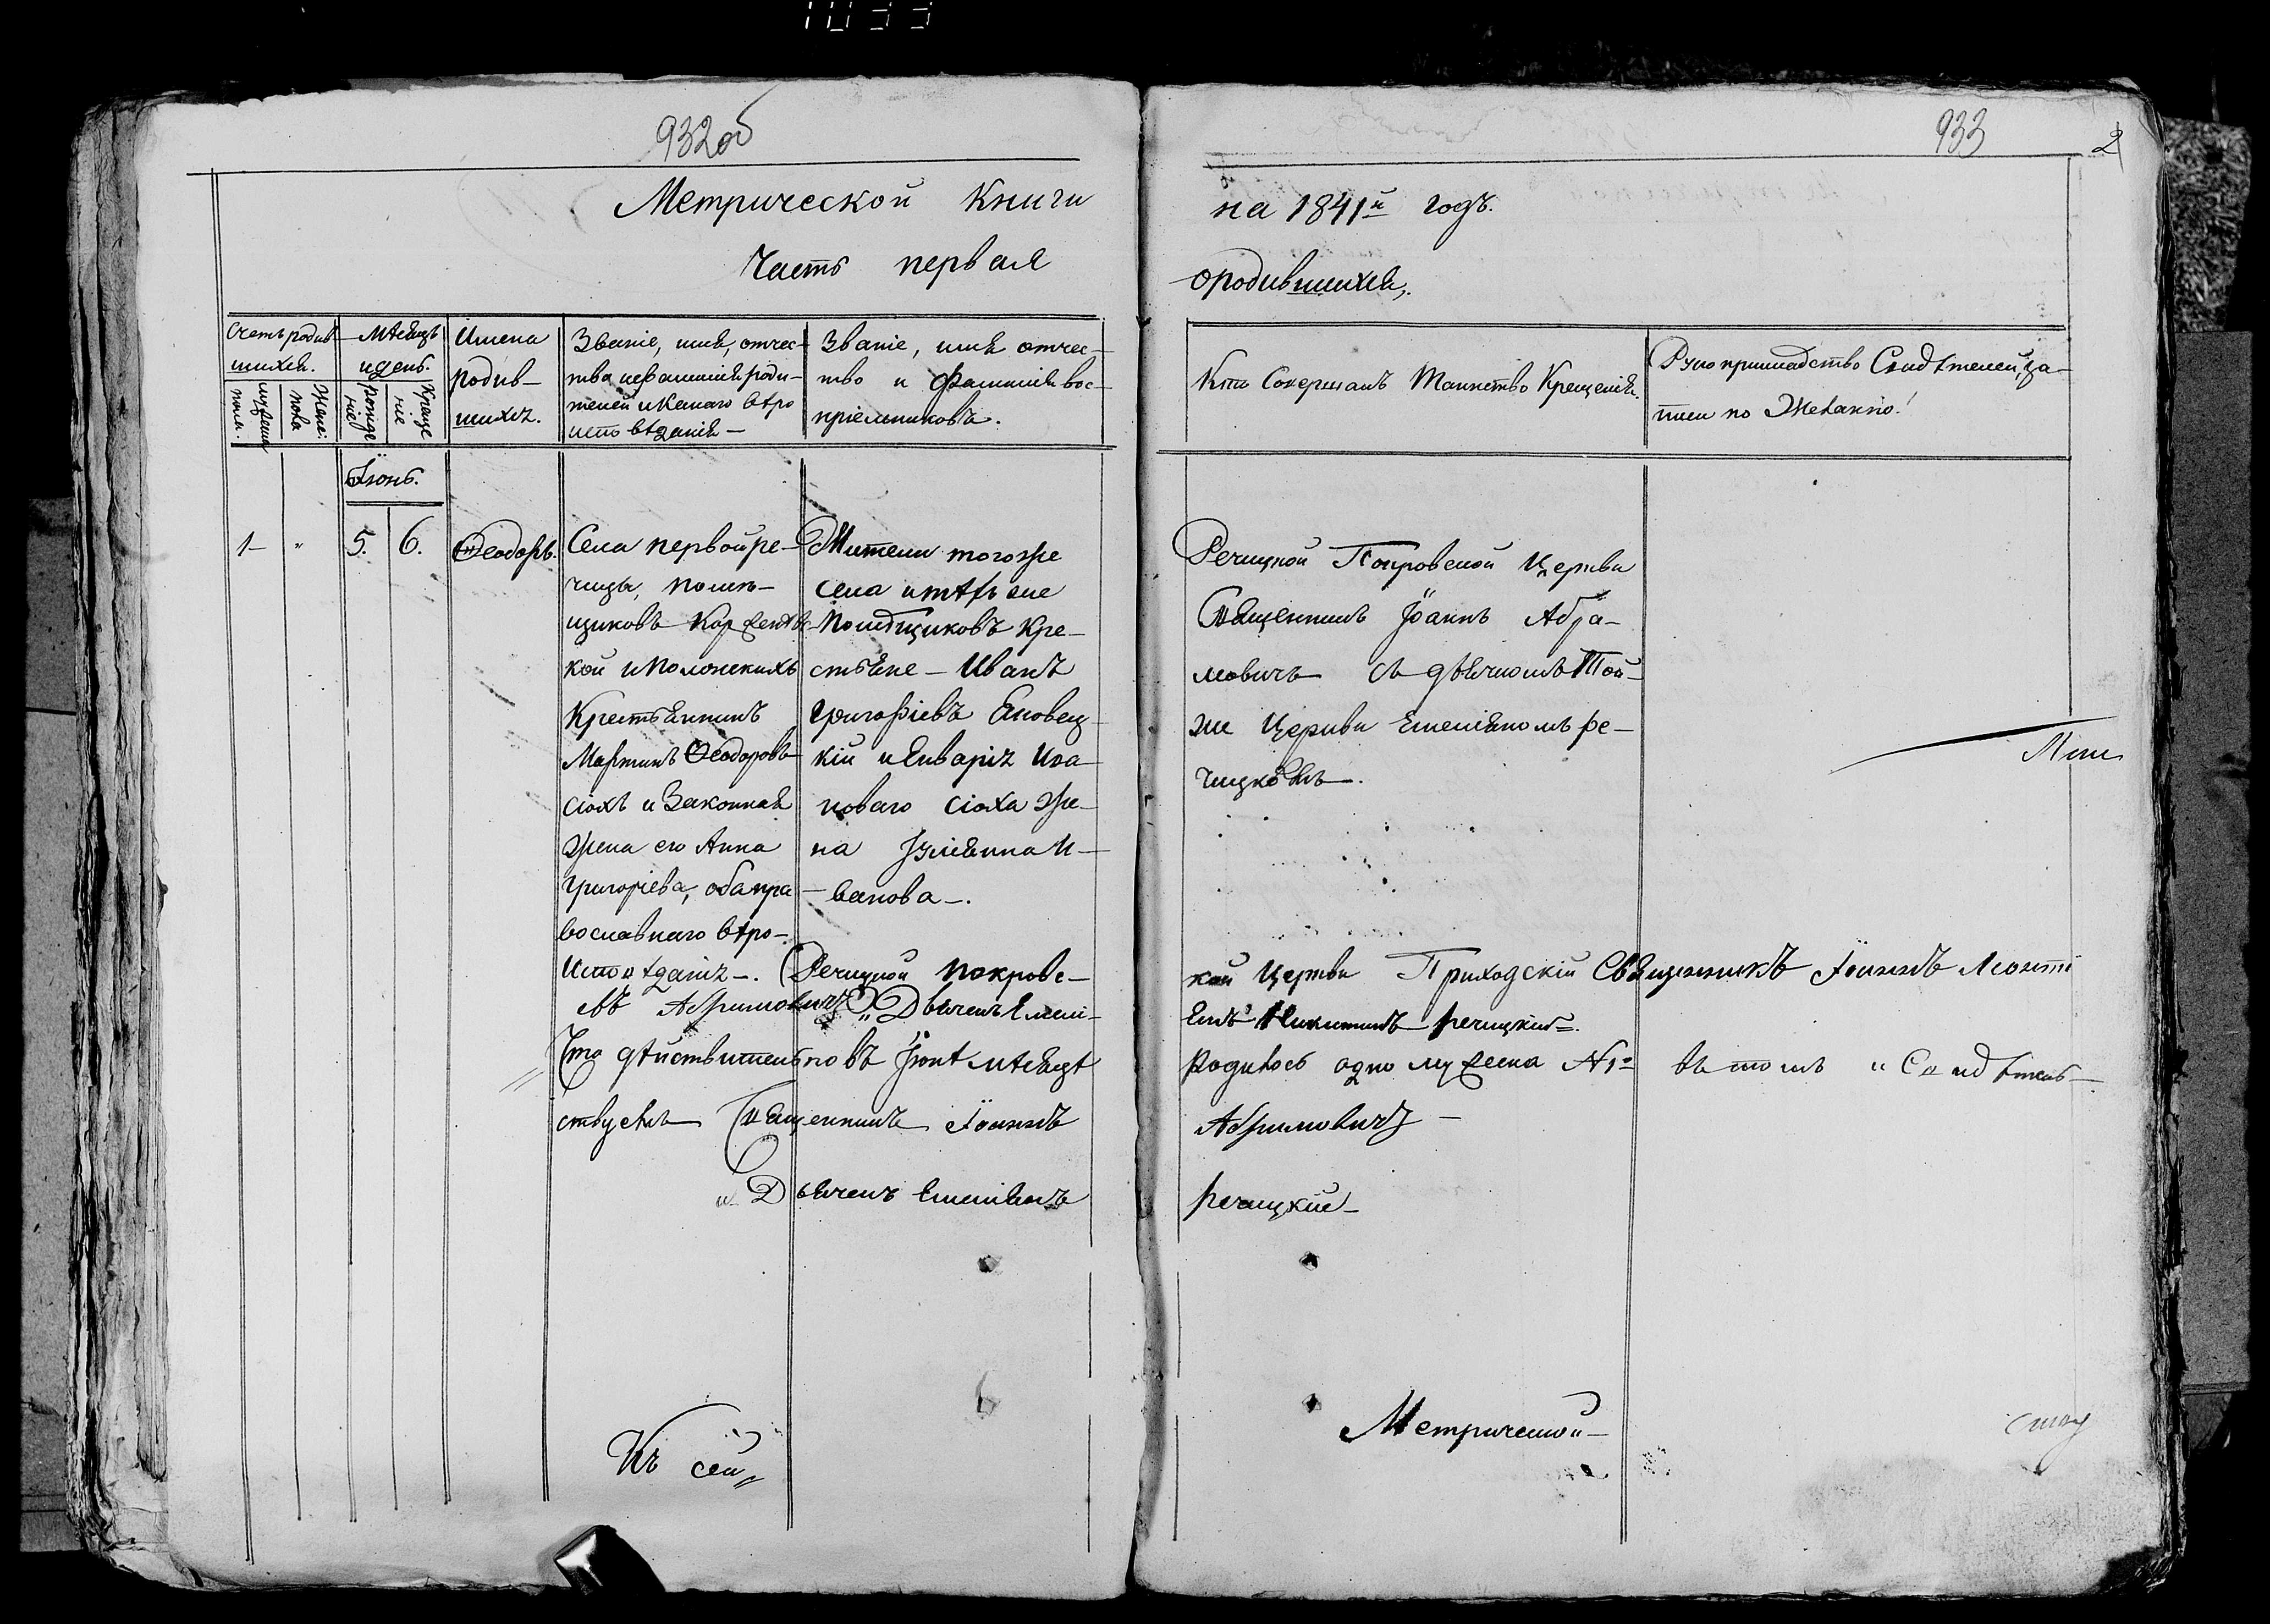 1033
932об
933
2
Метрической Книги
на 1841й годъ.
Часть первая
ородившихся,
Счетъ родив
шихся.
мужеска
пола.
Жене:
пола
Мѣсяцъ
и день.
рожде
ніе
Креще
ніе
Имена
родив-
шихъ.
Званіе, имя, отчес-
тва и фамилія роди-
телей и Какаго вѣро
исповѣданія-
Званіе, имя отчес-
тво и Фамилія вос-
пріемниковъ.
Кто Совершалъ Таинство Крещенія.
Рукоприкладство Свидѣтелей, за-
писи по Желанію!
Іюнь.
1- " 5. 6. Ѳеодоръ.
Села первой ре-
чицы, помѣ-
щиковъ
кой и Полонскихъ
Крестьянинъ
Мартинъ Ѳеодоровъ
сіохъ и Законная
Жена его Анна
Григоріева, оба пра
вославнаго вѣро-
Исповѣданія-.
Жители тогоже
села и тѣхъ же
Помѣщиковъ Кре-
стьяне- Иванъ
Григоріевъ Яковец
кій и
новаго сіоха Же-
на Іуліянна И-
-ванова-.
Речицкой Покровской Церкви
Священникъ Іоаннъ Абра-
мовичъ съ дьячкомъ Той-
же Церкви Емеліяномъ ре-
чицкимъ-.
Речицкой Покровс-
кой Церкви Приходскій Священникъ Іоаннъ
въ Абрамовичъ Дьячекъ Емелі-
янъ Никитинъ речицкій.
Что дѣйствительно въ Іюнѣ мѣсяцѣ
Родилось одно мужеска №1 въ томъ и Свидѣтель-
ствуемъ Священникъ Іоаннъ
Абрамовичъ-
и Дьячекъ Емеліянъ
речицкій-
Къ сей
Метрической-